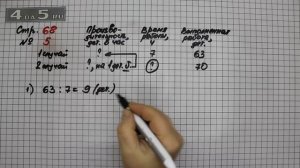 4 5
Стр. 68
№ 5
Произво-
дительность,
дет. в час
Время
работы,
ч
Выполненная
работа,
дет.
1 случай ? 7 63
2 случай ?, на 1 дет. ? 70
1) 63 : 7 = 9 (дет.)